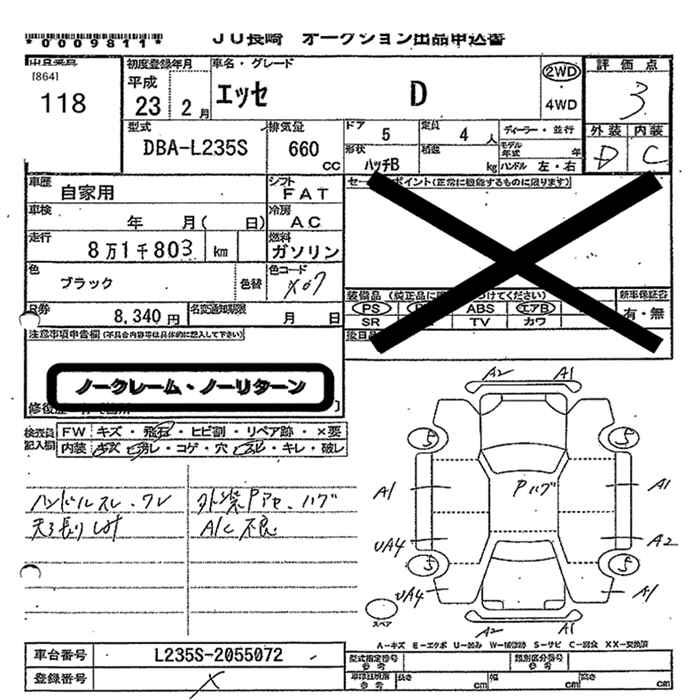 *0009811* JU長崎 オークション出品申込書
[864]
118
初度登録年月 平成 23 2月
車名・グレード エッセ D
2WD
4WD
評価点 3
外装 内装
D C
型式 DBA-L235S
排気量 660 CC
ドア 5 定員 4人 ディーラー・並行
形状 ハッチB 積載 kg モデル年式 年
ハンドル 左・右
車歴 自家用
シフト FAT
車検 年 月( 日)
冷房 AC
走行 8万1千803 km
燃料 ガソリン
色 ブラック 色替
色コード X07
R券 8,340円
名変通知期限 月 日
セー ポイント(正常に機能するものに限ります)
装備品 (純正品に つけてください) 新車保証書
PS ABS エアB 有・無
SR TV カワ
注意事項申告欄 (不具合内容等は具体的に記入して下さい)
ノークレーム・ノーリターン
検査員記入欄
FW キズ・飛石・ヒビ割・リペア跡・×要
内装 キズ・汚れ・コゲ・穴・スレ・キレ・破レ
ハンドルスレ・ワレ 外装Pアセ・ハゲ
天張りシミ A/C不良
A2 A1
5 5
A1 Pハゲ A1
UA4 A2
5 5
UA4 A1
A2 A1
スペア
A-キズ E-エクボ U-凹み W-補修跡 S-サビ C-腐食 XX-交換済
車台番号 L235S-2055072
登録番号 X
型式指定番号 参考 類別区分番号 参考
長さ cm 幅 cm 高さ cm